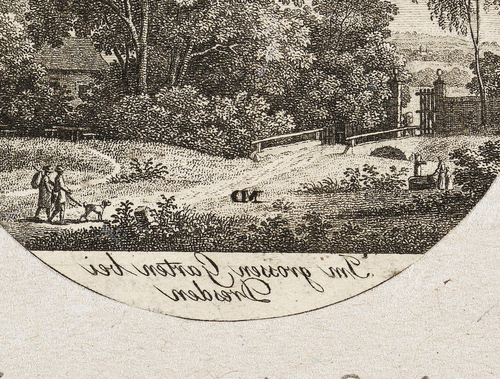 Im grossen Garten bei
Dresden